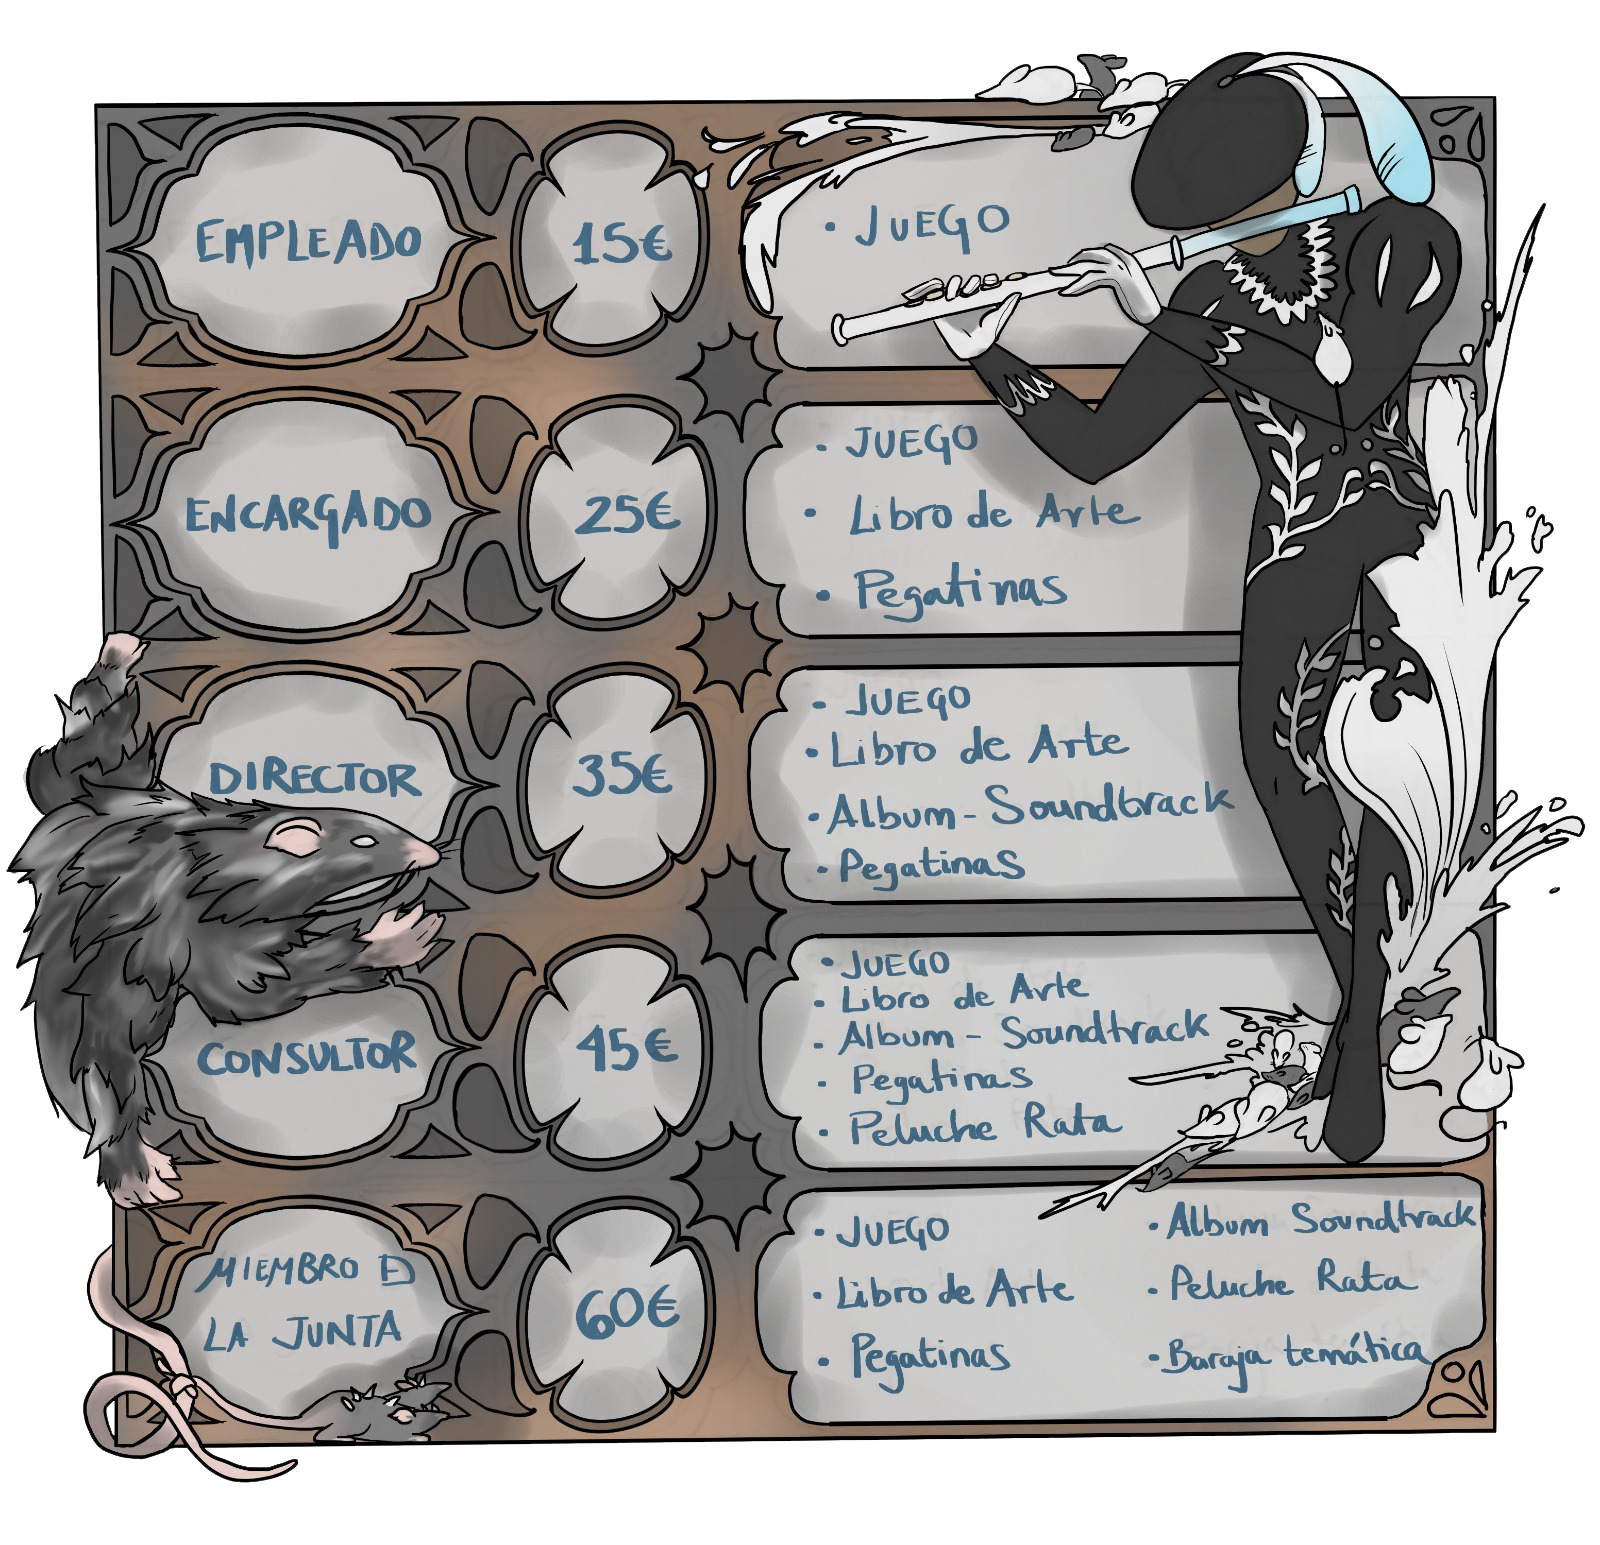 EMPLEADO
15€
• JUEGO
ENCARGADO
25€
• JUEGO
• Libro de Arte
• Pegatinas
DIRECTOR
35€
• JUEGO
• Libro de Arte
• Album - Soundtrack
• Pegatinas
CONSULTOR
45€
• JUEGO
• Libro de Arte
• Album - Soundtrack
• Pegatinas
• Peluche Rata
MIEMBRO DE
LA JUNTA
60€
• JUEGO
• Libro de Arte
• Pegatinas
• Album Soundtrack
• Peluche Rata
• Baraja temática